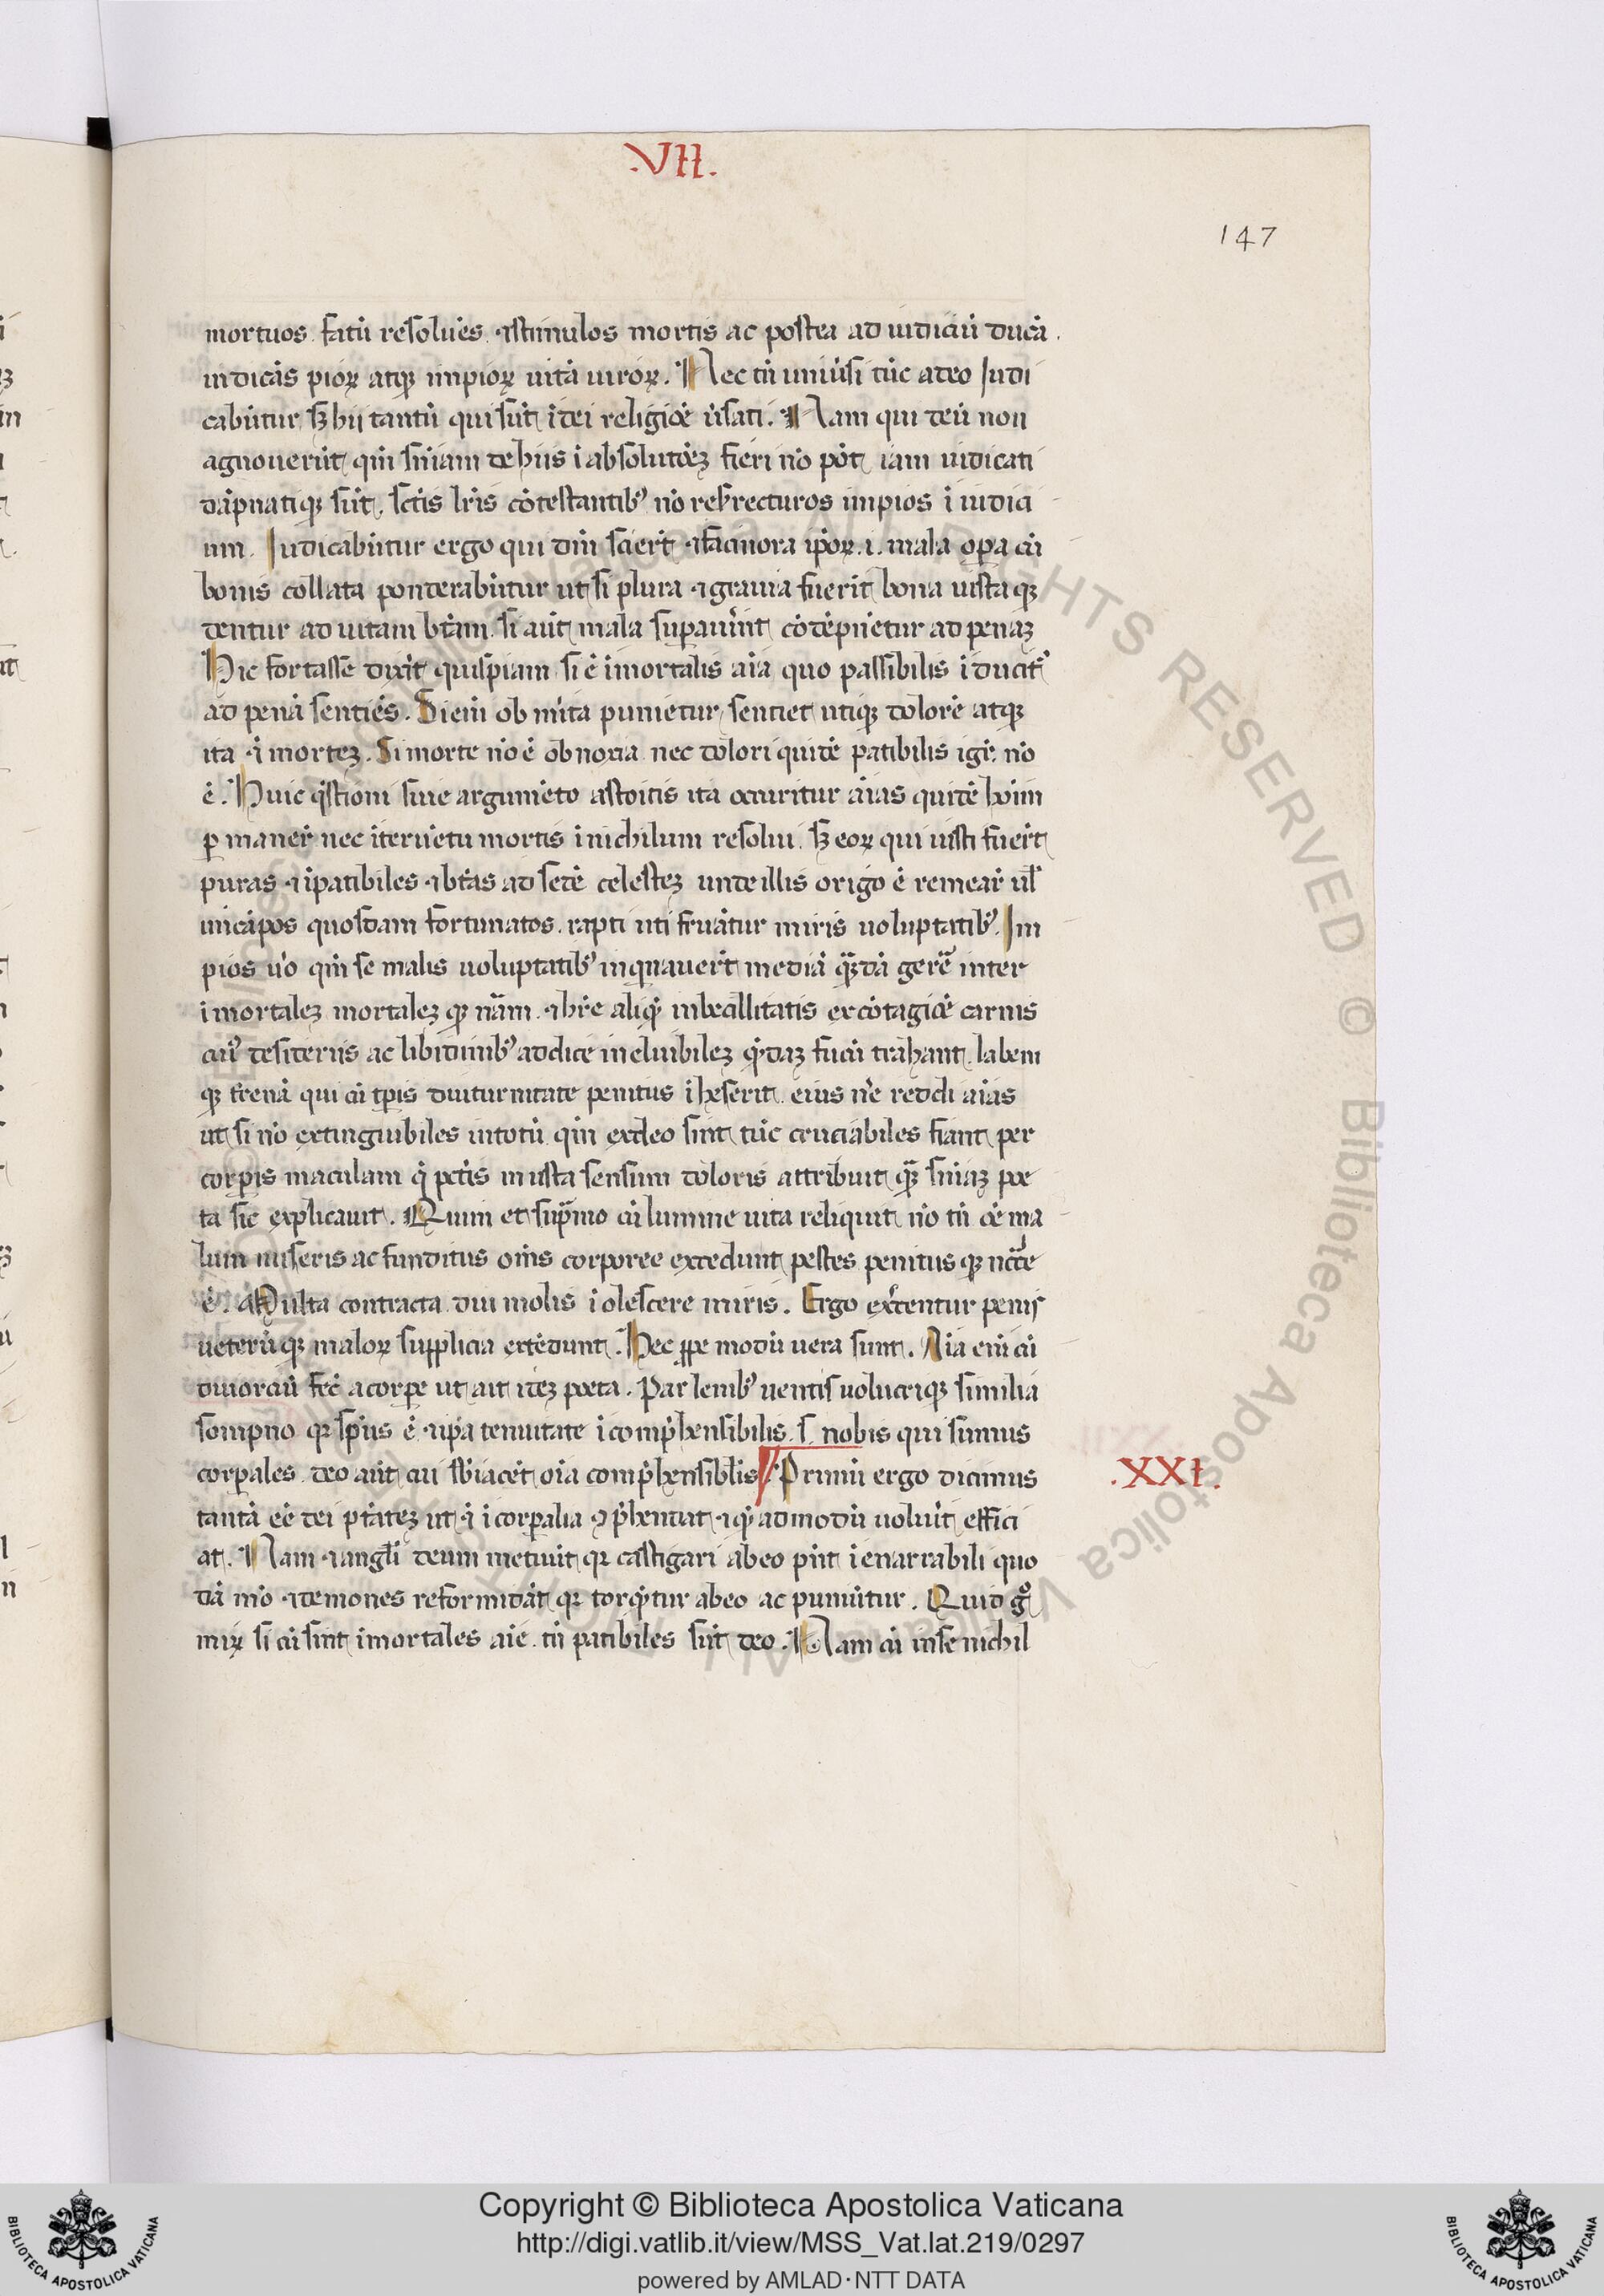 .VII.
147
mortuos. fatū resoluēs. ⁊stimulos mortis ac postea ad iudiciū ducā.
iudicās pioꝝ atqꝫ impioꝝ uitā uiroꝝ. Nec tn̄ uniūsi tūc adeo Judi
cabūtur sꝫ hii tantū qui sūt ī dei religiōe ūsati. Nam qui deū non
agnouerūt qm̄ sn̄iam de hiis ī absolutōeꝫ fieri nō pōt iam iudicati
dāpnatiqꝫ sūt. sctīs lrīs cōtestantibꝰ nō resrecturos impios ī iudici
um. Judicabūtur ergo qui dm̄ sciert̄ ⁊facinora ip̄oꝝ .i. mala opa cū
bonis collata ponderabūtur ut si plura ⁊grauia fuerīt bona iusta qꝫ
dentur ad uitam btām. si aūt mala supauīnt cōdēpnētur ad penaꝫ
Hic fortasse dixīt quispiam si ē īmortalis aīa quo passibilis īducitꝰ
ad penā sentiēs. Si em̄ ob mīta punietur sentiet utiqꝫ dolorē atqꝫ
ita ⁊ī morteꝫ. Si morte nō ē obnoxia nec dolori quidē patibilis igr̄. nō
ē. Huic qstioni siue argumēto astoicis ita occuritur aīas quidē hoīm
pmaner̄ nec īteruētu mortis ī nichilum resolui. sꝫ eoꝝ qui iusti fuert̄
puras ⁊īpatibiles ⁊btās ad sedē celesteꝫ unde illis origo ē remear̄ ul̄
in cāpos quosdam fortunatos. rapti uti fruātur miris uoluptatibꝰ. Im
pios uō qm̄ se malis uoluptatibꝰ inqnauert̄ mediā qᷓdā gerē inter
īmortaleꝫ mortaleꝫ qꝫ nām. ⁊hrē aliqd̄ inbecillitatis ex cōtagiōe carnis
cuiꝰ desideriis ac libidinibꝰ addicte ineluibileꝫ qdaꝫ fucū trahant. labem
qꝫ trenā qui cū tp̄is diuturnitate penitus īheserit. eius nē reddi aīas
ut si nō extinguibiles in totū qm̄ ex deo sint tūc cruciabiles fiant per
corpis maculam q̄ pctīs inusta sensum doloris attribuit. qᷓ sn̄iaꝫ poe
ta sic explicauit. Quin et supᷓmo cū lumine uita reliquit. nō tn̄ oē ma
lum miseris ac funditus om̄s corporee excedunt pestes penitus qꝫ nccē
ē. Multa contracta diu molis īolescere miris. Ergo exrcentur penis
ueterūqꝫ maloꝝ supplicia expēdunt. Hec ppe modū uera sunt. Aīa eni cū
diuorciū fec̄ a corpe ut ait ideꝫ poeta. Par leuibꝰ uentis uolucriqꝫ similia
sompno qꝛ sp̄us ē ⁊ip̄a tenuitate īcomp̄hensibilis. s. nobis qui sumus
corpales. deo aūt cui sbiacēt oīa comp̄hensiblis Primū ergo dicimus
.XXI.
tantā eē dei ptāteꝫ ut ⁊ ī corpalia ꝯp̄hendat ⁊ qd̄admodū uolūit effici
at. Nam ⁊angl̄i deum metuūt qꝛ castigari ab eo pn̄t īenarrabili quo
dā mō ⁊demones reformidāt qꝛ torqūtur ab eo ac puniūtur. Quid gͦ
miꝝ si cū sint īmortales aīe tn̄ patibiles sūt deo. Nam cū in se nichil
Copyright © Biblioteca Apostolica Vaticana
http://digi.vatlib.it/view/MSS_Vat.lat.219/0297
powered by AMLAD·NTT DATA